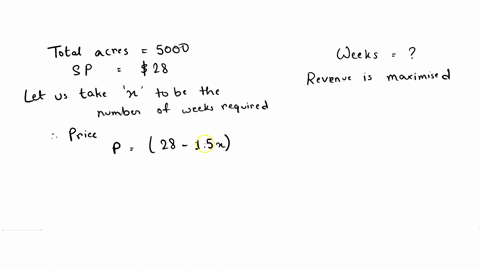 Total acres = 5000
SP = $28
Let us take 'x' to be the
number of weeks required
∴ Price
P = (28 - 1.5x)
Weeks = ?
Revenue is maximised